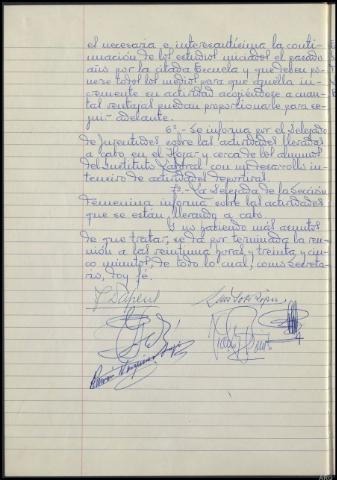 es necesaria e interesantísima la conti-
nuación de los estudios iniciados el pasado
año por la citada Escuela y que deben po-
nerse todos los medios para que aquella in-
cremente su actividad acogiéndose a cuan-
tas ventajas puedan proporcionarle para se-
guir adelante.
6º.- Se informa por el Delegado
de Juventudes sobre las actividades llevadas
a cabo en el Hogar y cerca de los alumnos
del Instituto Laboral con un desarrollo in-
tensivo de actividades deportivas.
7º.- La Delegada de la Sección
Femenina informa sobre las actividades
que se están llevando a cabo.
Y no habiendo más asuntos
de que tratar, se da por terminada la reu-
nión a las veintiuna horas y treinta y cin-
co minutos, de todo lo cual, como Secreta-
rio, doy fé.